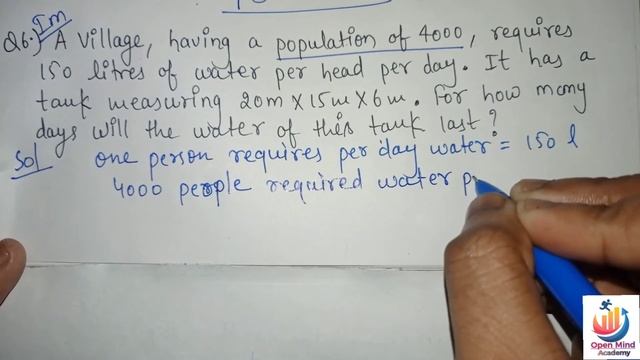 Im
Q6.) A village, having a population of 4000, requires
150 litres of water per head per day. It has a
tank measuring 20m × 15m × 6m. For how many
days will the water of this tank last?
Sol one person requires per day water = 150 l
4000 people required water p
Open Mind
Academy